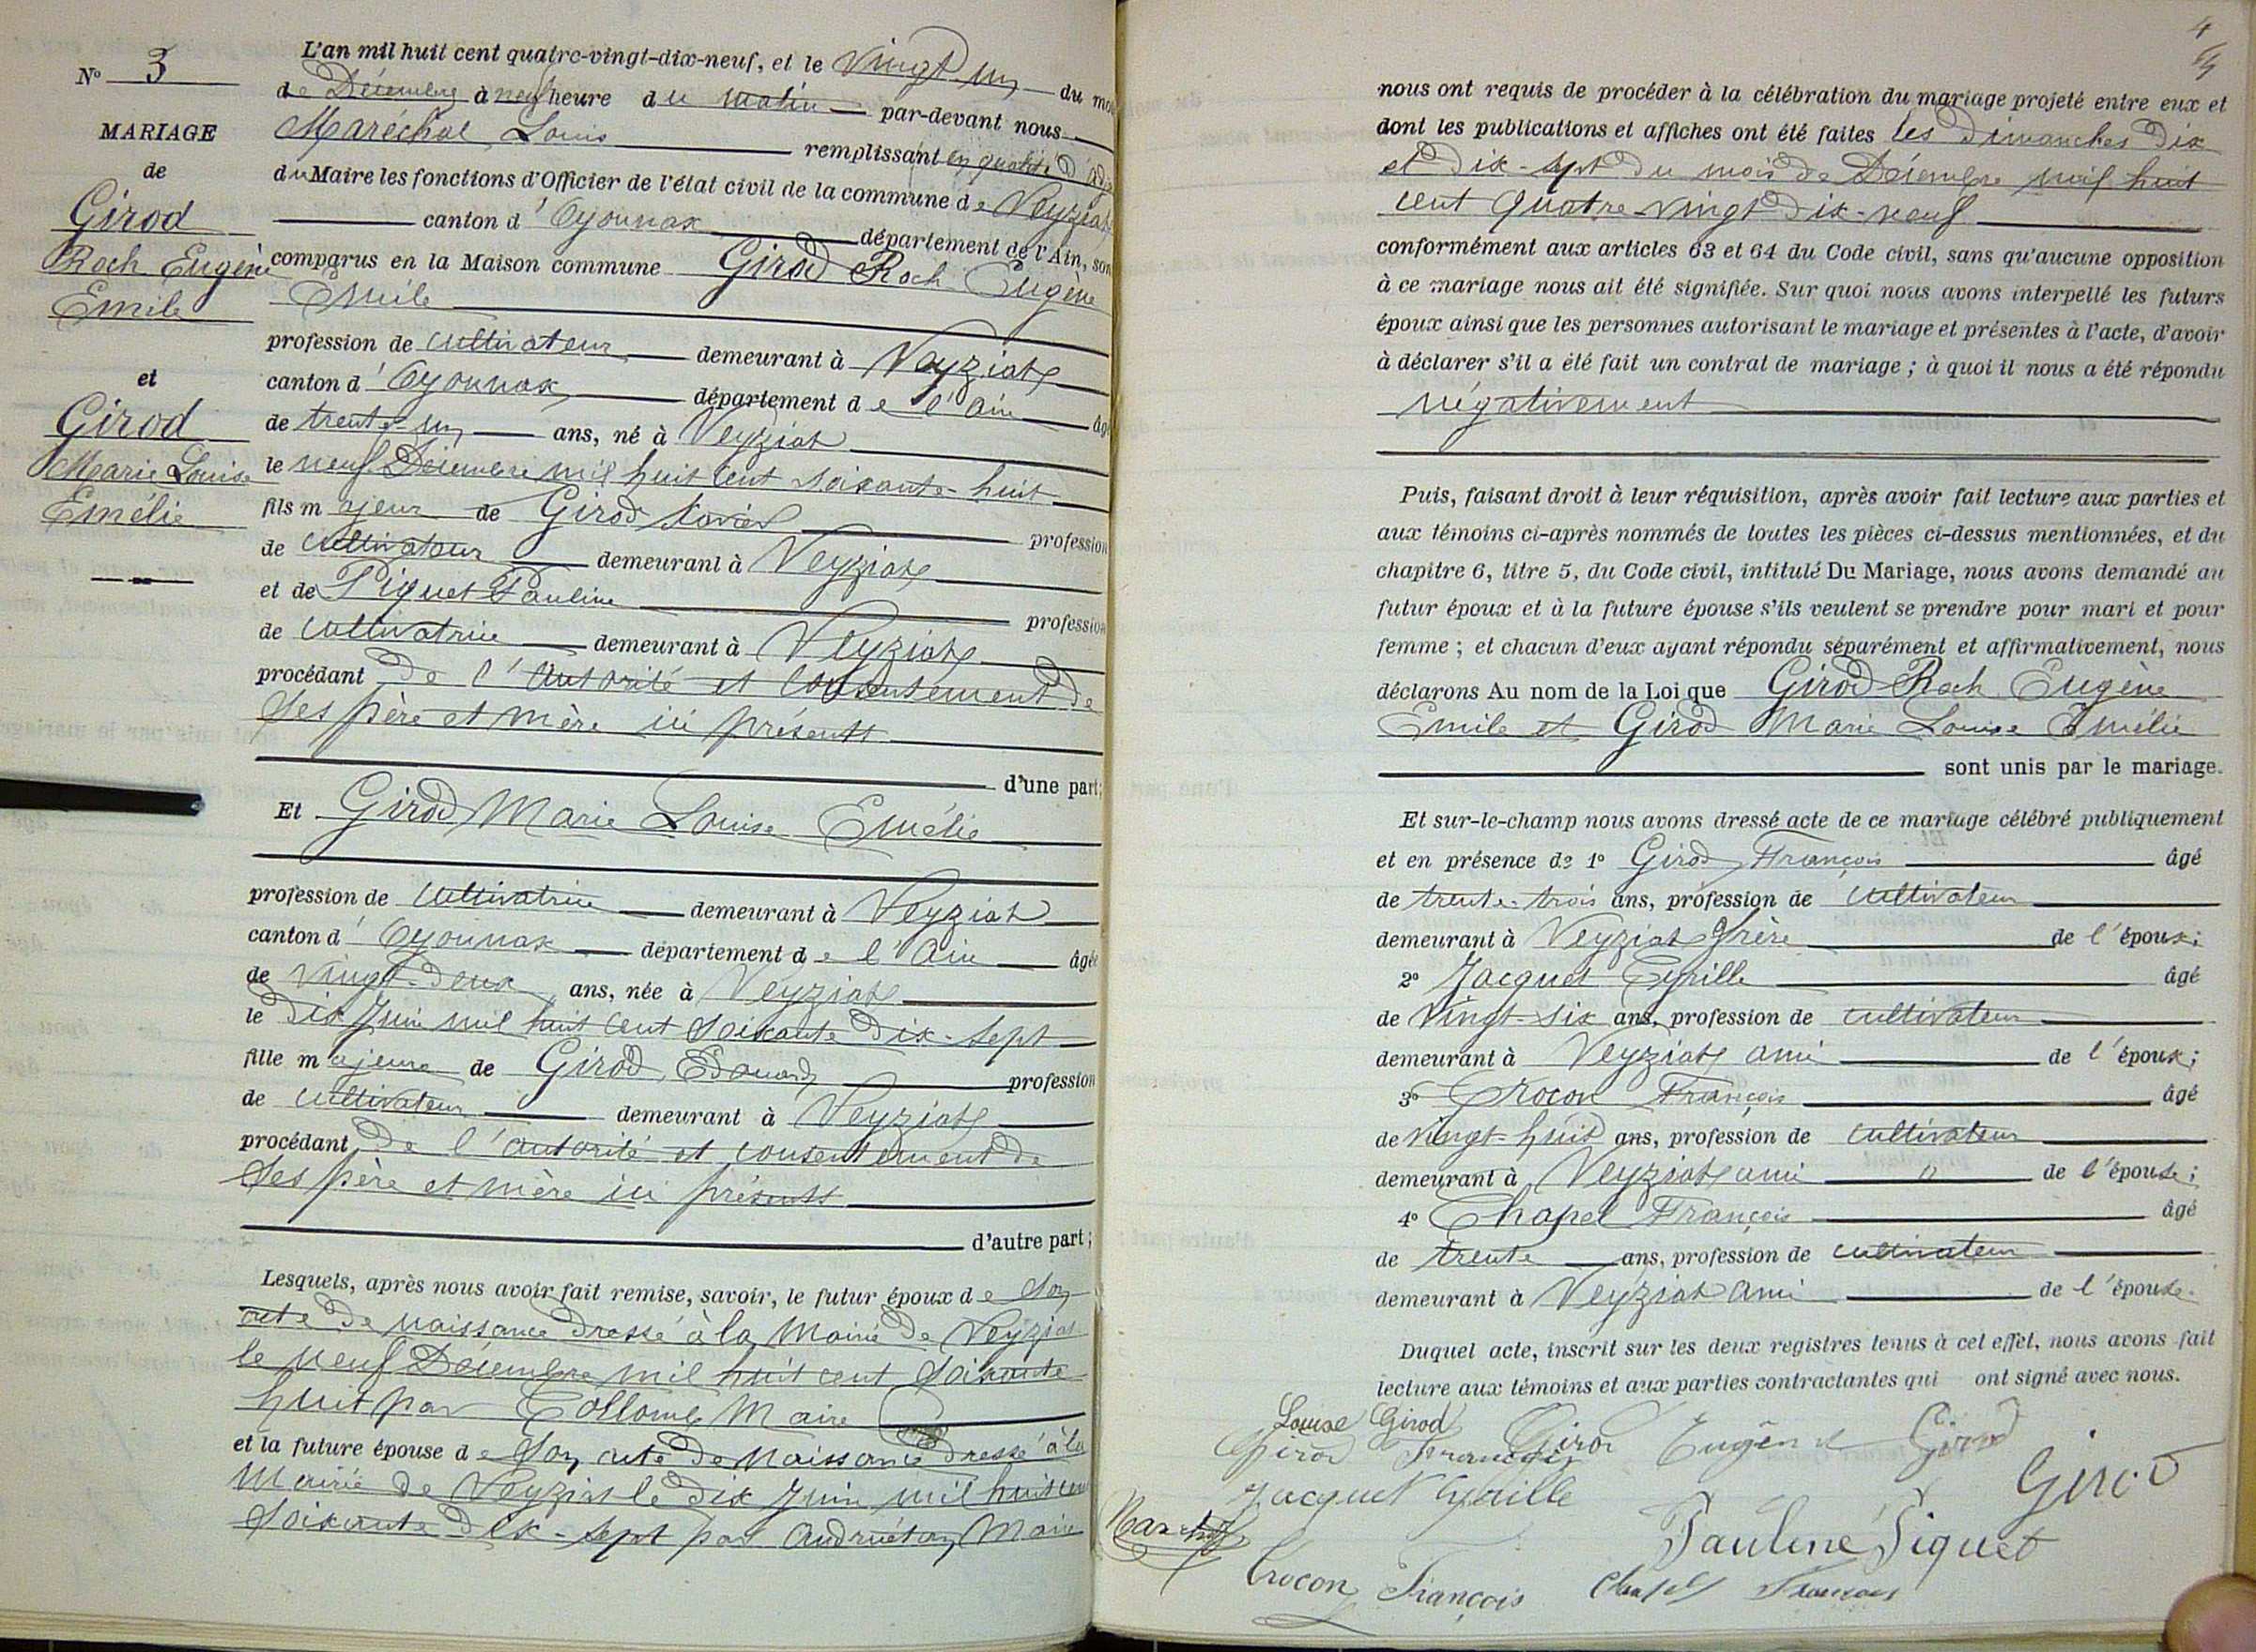 N° 3
MARIAGE
de
Girod
Roch Eugène
Emile
et
Girod
Marie Louise
Emélie
L'an mil huit cent quatre-vingt-dix-neuf, et le Vingt un du mois
de Décembre à neuf heure du matin par-devant nous
Maréchal Louis remplissant en qualité d'
du Maire les fonctions d'Officier de l'état civil de la commune de Veyziat
canton d'Oyonnax département de l'Ain, sont
comparus en la Maison commune Girod Roch Eugène
Emile
profession de cultivateur demeurant à Veyziat
canton d'Oyonnax département de l'Ain âgé
de trente-un ans, né à Veyziat
le neuf Décembre mil huit cent soixante-huit
fils majeur de Girod Xavier profession
de cultivateur demeurant à Veyziat
et de Piquet Pauline profession
de cultivatrice demeurant à Veyziat
procédant de l'autorité et consentement de
ses père et mère ici présents
d'une part;
Et Girod Marie Louise Emélie
profession de cultivatrice demeurant à Veyziat
canton d'Oyonnax département de l'Ain âgée
de vingt-deux ans, née à Veyziat
le dix Juin mil huit cent soixante dix-sept
fille majeure de Girod Edouard profession
de cultivateur demeurant à Veyziat
procédant de l'autorité et consentement de
ses père et mère ici présents
d'autre part;
Lesquels, après nous avoir fait remise, savoir, le futur époux de son
acte de naissance dressé à la Mairie de Veyziat
le neuf Décembre mil huit cent soixante
huit par Collomb Maire
et la future épouse de son acte de naissance dressé à la
Mairie de Veyziat le dix Juin mil huit cent
soixante dix-sept par Andruétan Maire
4
nous ont requis de procéder à la célébration du mariage projeté entre eux et
dont les publications et affiches ont été faites les dimanches dix
et dix-sept du mois de Décembre mil huit
cent quatre-vingt dix-neuf
conformément aux articles 63 et 64 du Code civil, sans qu'aucune opposition
à ce mariage nous ait été signifiée. Sur quoi nous avons interpellé les futurs
époux ainsi que les personnes autorisant le mariage et présentes à l'acte, d'avoir
à déclarer s'il a été fait un contrat de mariage; à quoi il nous a été répondu
négativement
Puis, faisant droit à leur réquisition, après avoir fait lecture aux parties et
aux témoins ci-après nommés de toutes les pièces ci-dessus mentionnées, et du
chapitre 6, titre 5, du Code civil, intitulé Du Mariage, nous avons demandé au
futur époux et à la future épouse s'ils veulent se prendre pour mari et pour
femme; et chacun d'eux ayant répondu séparément et affirmativement, nous
déclarons Au nom de la Loi que Girod Roch Eugène
Emile et Girod Marie Louise Emélie
sont unis par le mariage.
Et sur-le-champ nous avons dressé acte de ce mariage célébré publiquement
et en présence de 1° Girod François âgé
de trente-trois ans, profession de cultivateur
demeurant à Veyziat frère de l'époux;
2° Jacquet Cyrille âgé
de vingt-six ans, profession de cultivateur
demeurant à Veyziat ami de l'époux;
3° Crocon François âgé
de vingt-huit ans, profession de cultivateur
demeurant à Veyziat ami de l'épouse;
4° Chapel François âgé
de trente ans, profession de cultivateur
demeurant à Veyziat ami de l'épouse.
Duquel acte, inscrit sur les deux registres tenus à cet effet, nous avons fait
lecture aux témoins et aux parties contractantes qui ont signé avec nous.
Louise Girod
Girod François Girod Eugène Girod
Jacquet Cyrille Girod
Pauline Piquet
Crocon François Chapel François